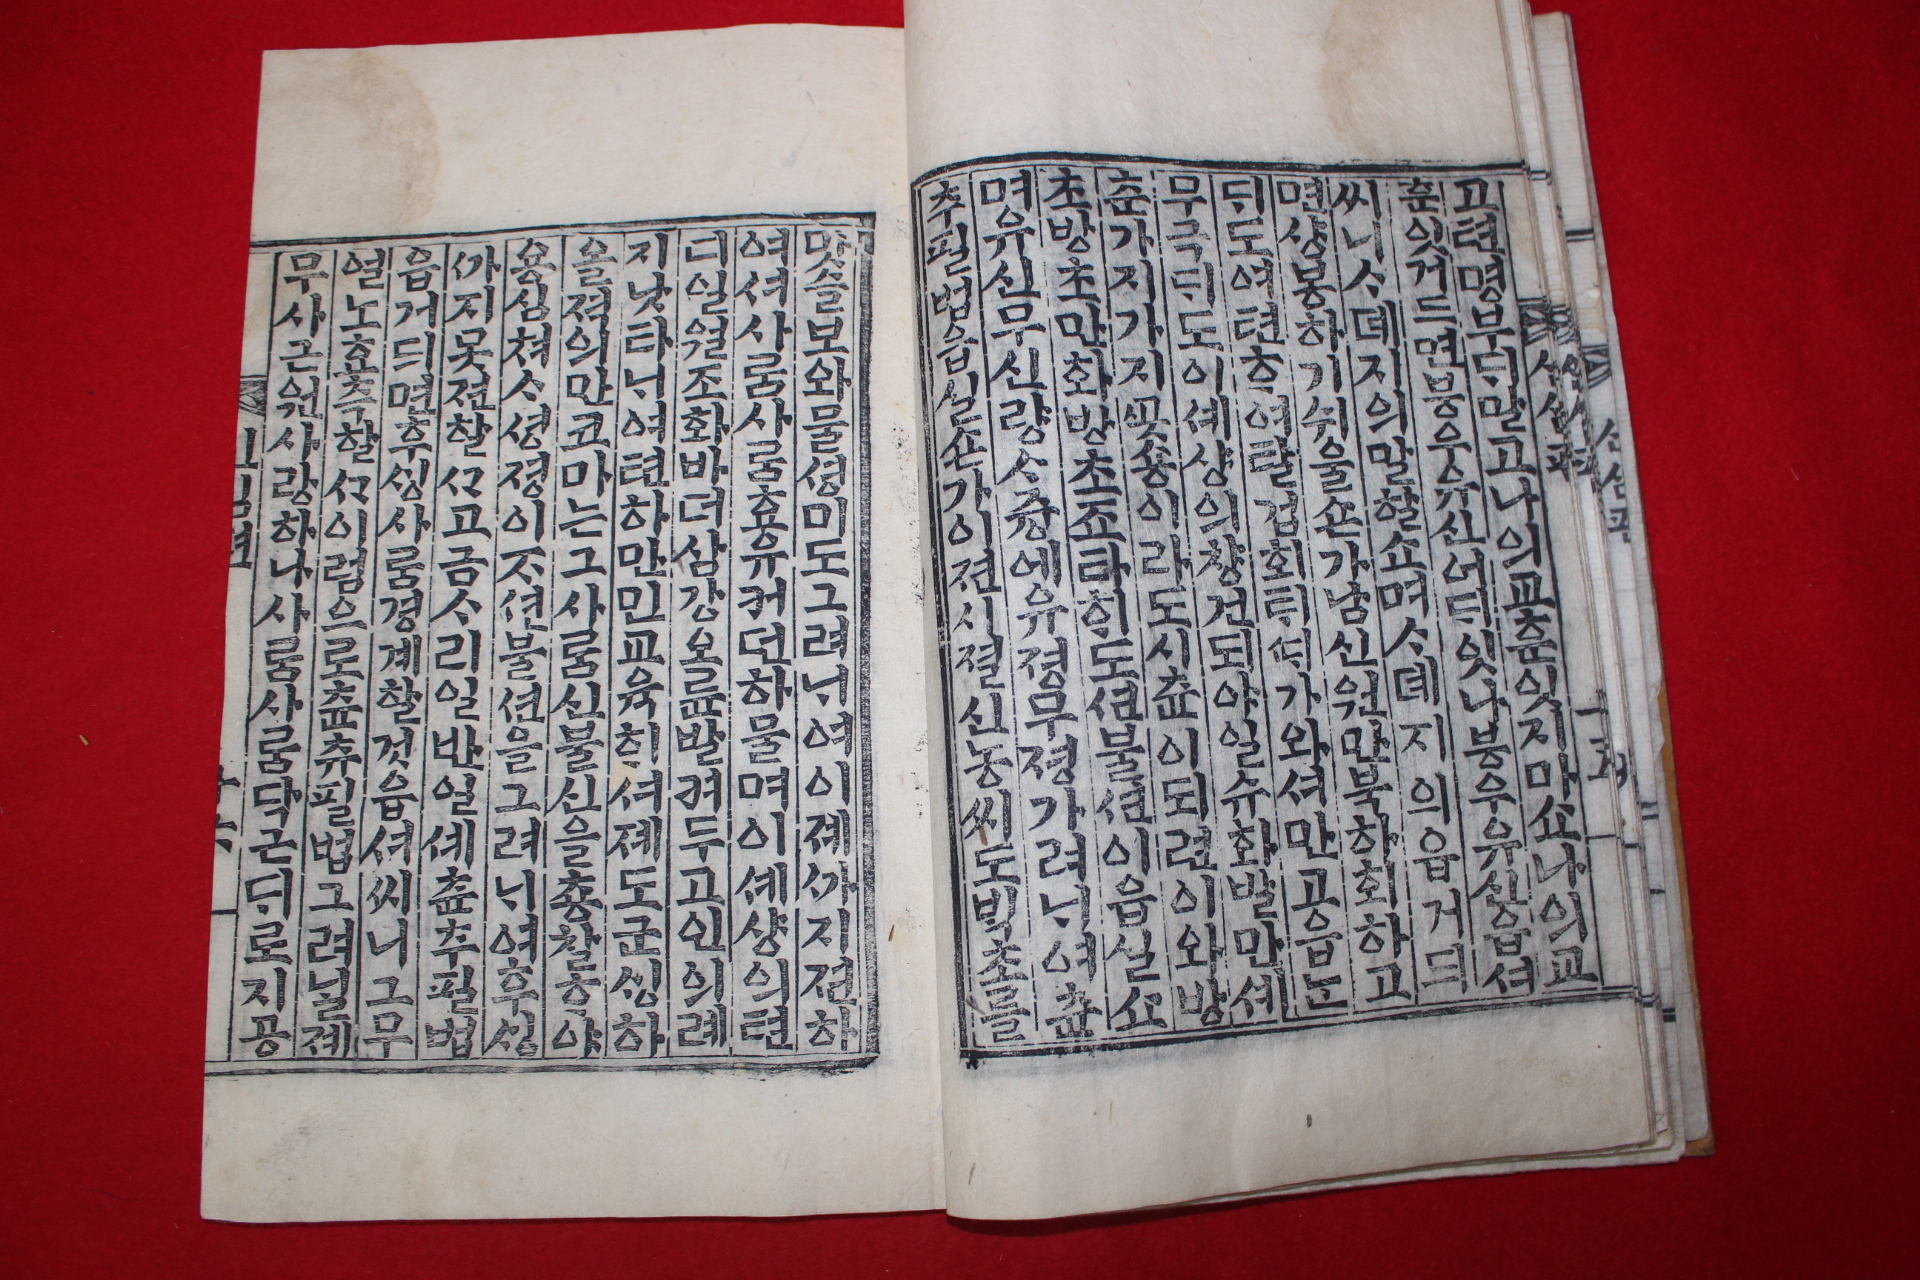 고텬명부ᄃᆡ말고나의교훈잇지마쇼나의교
훈잇거드면붕우유신어ᄃᆡ잇나붕우유신읍셔
씨니ᄉᆞ데지의말할쇼며ᄉᆞ데지의읍거듸
면샹봉하기쉬울숀가남신원만북하회하고
듸도여텬ᄒᆞ여탈겁회ᄃᆡ더가와셔만고읍ᄂᆞᆫ
무극ᄃᆡ도이셰샹의챵건되야일슈화발만셰
츈가지가지꼿숑이라도시츈이되련이와방
초방초만화방초죠타ᄒᆡ도션불션이읍실쇼
며유신무신량ᄉᆞ즁에유졍무졍가려ᄂᆡ여츈
추필법읍실숀가이젼시졀신농씨도ᄇᆡᆨ초를
맛슬보와물셩미도그려ᄂᆡ여이졔ᄭᆞ지젼하
여셔사ᄅᆞᆷ사ᄅᆞᆷ효유커던하물며이셰샹의텬
디일월조화바더삼강오륜발켜두고인의례
지낫타ᄂᆡ여텬하만민교육ᄒᆡ셔졔도군ᄉᆡᆼ하
올젹의만코마는그사ᄅᆞᆷ신불신을춍찰등야
용심쳐ᄉᆞ셩졍이ᄌᆞ션불션을그려ᄂᆡ여후ᄉᆡᆼ
ᄭᆞ지못젼찰ᄭᆞ고금ᄉᆞ리일바일셰츈추필법
읍거듸면후ᄉᆡᆼ사ᄅᆞᆷ경계찰것읍셔씨니그무
열노효측할ᄭᆞ이럼으로츈츄필법그려ᄂᆡᆯ졔
무사곤원사랑하나사ᄅᆞᆷ사ᄅᆞᆷ닥근ᄃᆡ로지공